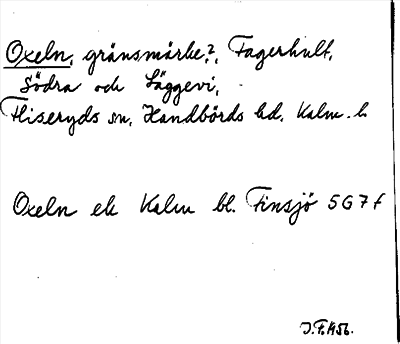 Oxeln, gränsmärke?, Fagerhult,
Södra och Läggevi,
Fliseryds sn, Handbörds hd, Kalm. l.
Oxeln ek Kalm bl. Finsjö 5G7f
J.F. 1956.